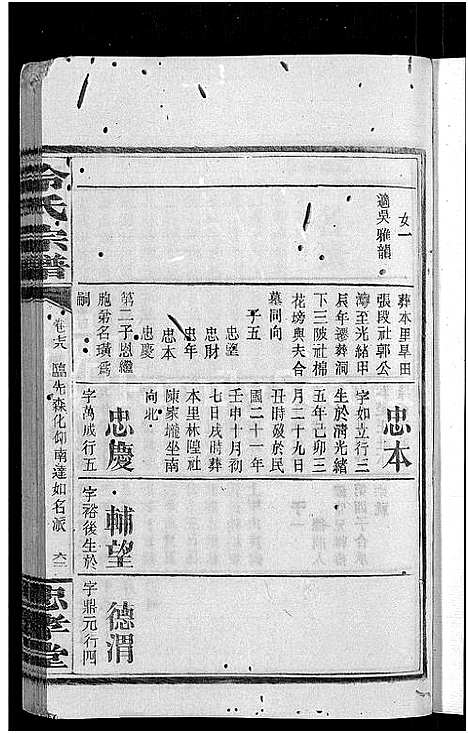 女一
適吳雅韻
葬本里旱田
張段社郭公
灣至光緒甲
辰年遷葬洞
下三陂社棉
花塝與夫合
墓同向
子五
忠望
忠財
忠年
忠本
忠慶
第二子恩繼
胞弟名璜爲
嗣
忠本
字如立行三
生於清光緒
五年己卯三
月二十九日
丑時歿於民
國二十一年
壬申十月初
七日戌時葬
本里林隍社
陳家壠坐南
向北
忠慶
字萬成行五
輔望
字裕後生於
德渭
字鼎元行四
冷氏宗譜
卷
臨先森化仰南達如名派
忠孝堂